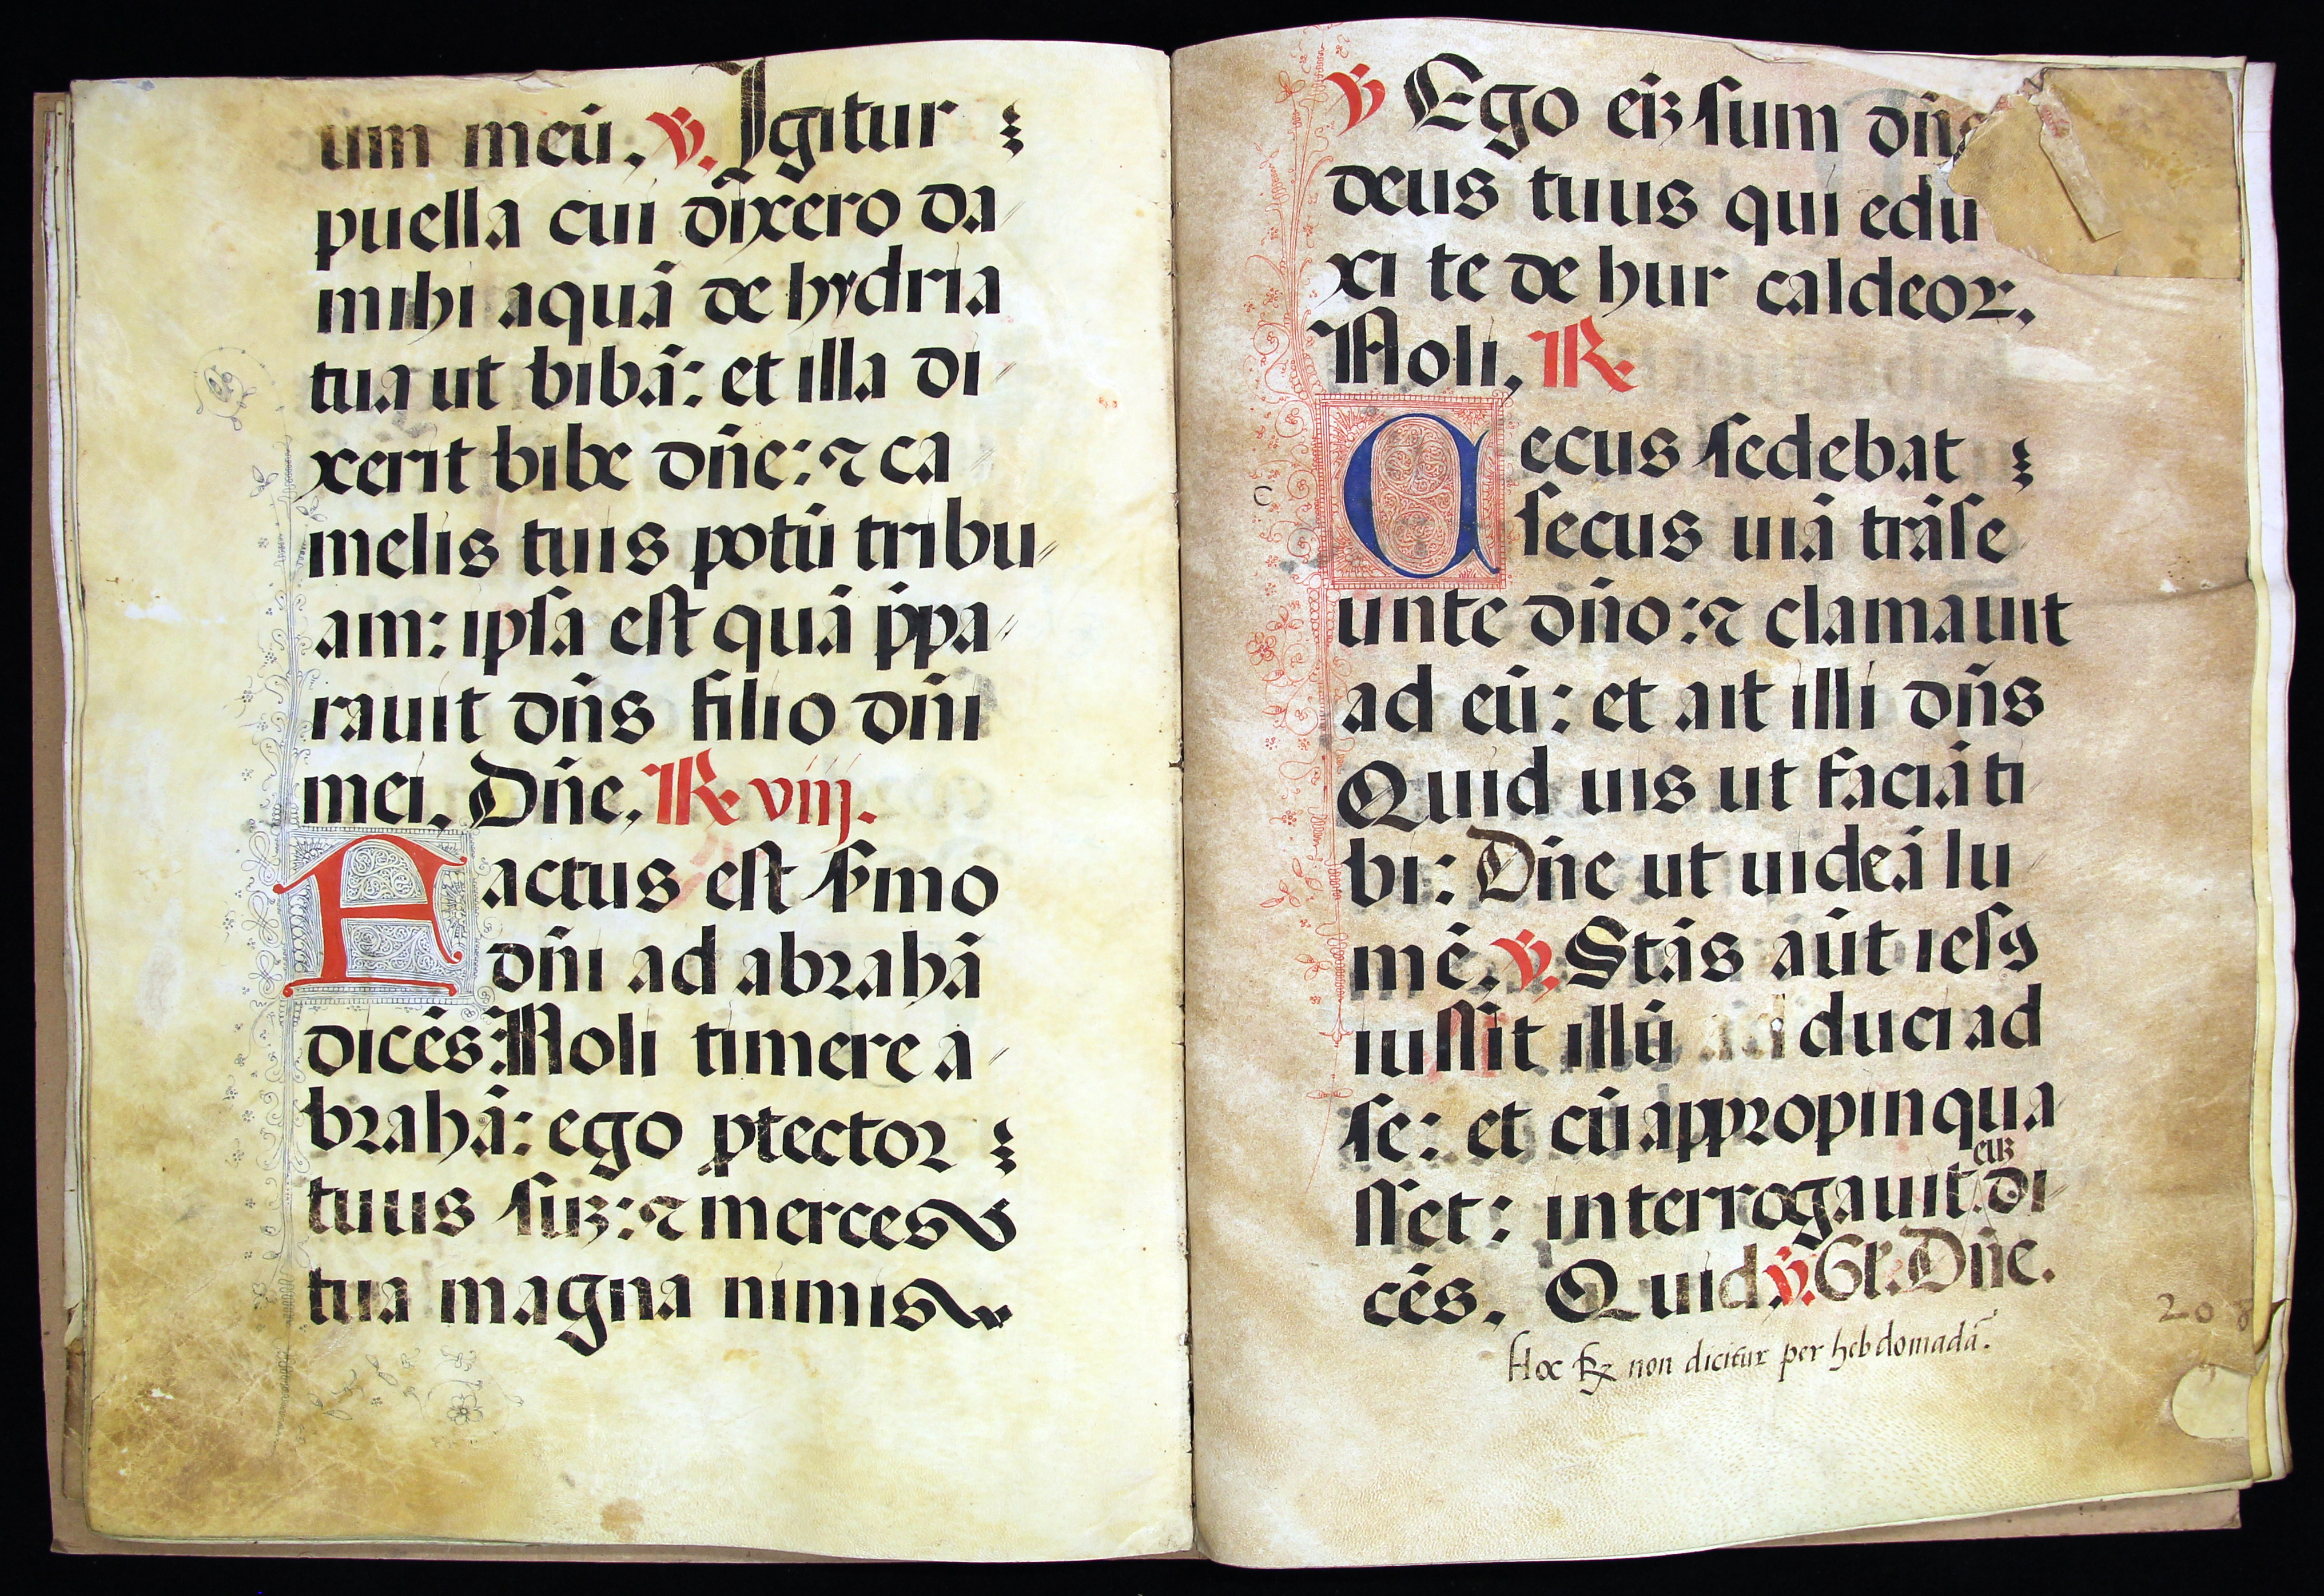 um meū. ℣. Igitur
puella cui dix̃ero da
mihi aquā de hydria
tua ut bibā: et illa di
xerit bibe dñe: ⁊ ca
melis tuis potū tribu
am: ipſa eſt quā p̄pa
rauit dñs filio dñi
mei. Dñe. ℟ viij.
Factus eſt ſmo
dñi ad abrahā
dicēs: Noli timere a
brahā: ego ꝓtector
tuus ſuꝫ: ⁊ merces
tua magna nimis
℣ Ego eiꝫ ſum dñs
deus tuus qui edu
xi te de hur caldeoꝝ.
Noli. ℟
Caecus ſedebat
ſecus uiā trāſe
unte dño: ⁊ clamauit
ad eū: et ait illi dñs
Quid uis ut faciā ti
bi: Dñe ut uideā lu
mē. ℣. Stās aūt ieſꝰ
iuſſit illū ad duci ad
ſe: et cū appropinqua
euꝫ
ſſet: interrogauit di
cēs. Quid ℣. Gl. Dñe.
Hoc ℟ non dicitur per hebdomadā.
208
C